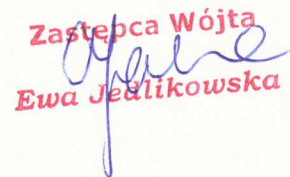 Zastępca Wójta
Ewa Jedlikowska